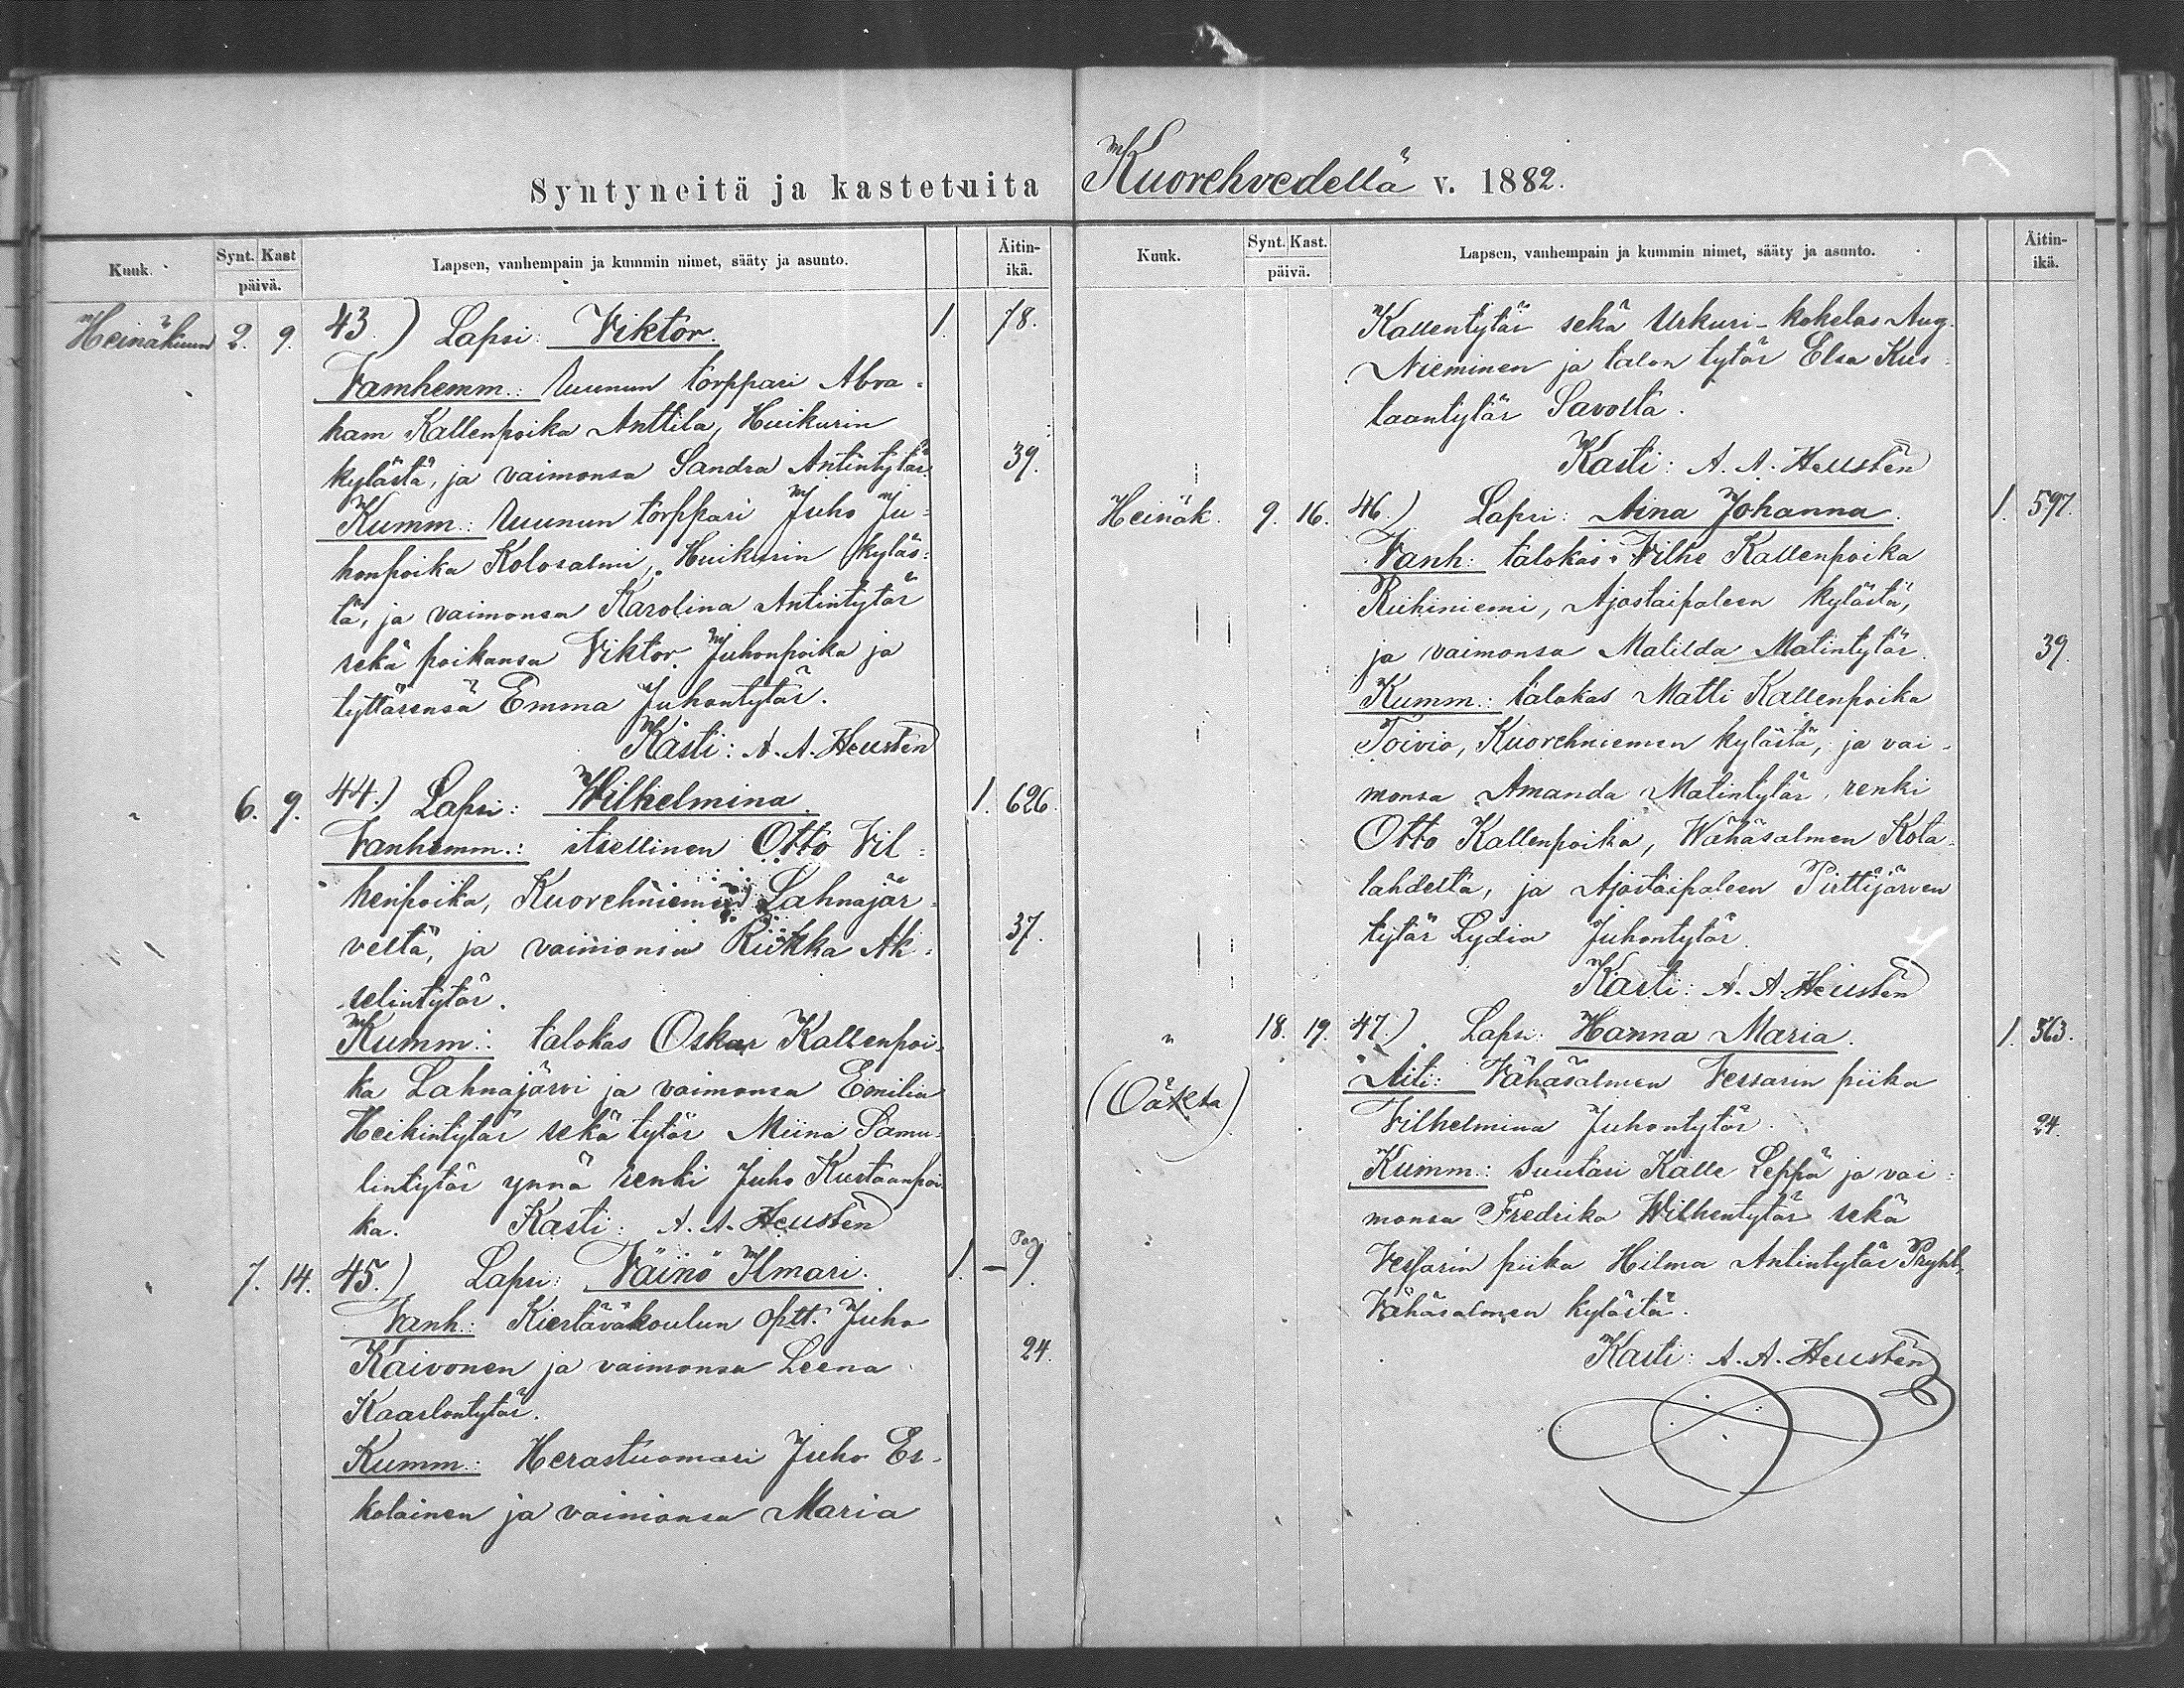 Syntyneitä ja kastetuita Kuorehvedellä v. 1882.
Kuuk. Synt. Kast päivä. Lapsen, vanhempain ja kummin nimet, sääty ja asunto. Äitin-ikä.
Heinäkuun 2. 9. 43.) Lapsi: Viktor. 1. 78.
Vamhemm.: Uunun torppari Abra-
ham Kallenpoika Anttila, Huikurin
kylästä, ja vaimonsa Sandra Antintytär. 39.
Kumm.: Uunun torppari Juho Ju-
honpoika Kolosalmi, Huikurin kyläs-
tä, ja vaimonsa Karolina Antintytär
sekä poikansa Viktor Juhonpoika ja
tyttärensä Emma Juhontytär.
Kasti: A. A. Heusten
" 6. 9. 44.) Lapsi: Wilhelmina. 1. 626.
Vanhemm.: itsellinen Otto Vil-
henpoika, Kuorehniemen Lahnajär-
veltä, ja vaimonsa Riikka Ak- 37.
selintytär.
Kumm.: talokas Oskar Kallenpoi-
ka Lahnajärvi ja vaimonsa Emilia
Heikintytär sekä tytär Miina Samu-
lintytär ynnä renki Juho Kustaanpoi-
ka. Kasti: A. A. Heusten
" 7. 14. 45.) Lapsi: Väinö Ilmari. 1. — Pag. 9.
Vanh.: Kiertäväkoulun optt. Juho
Kaivonen ja vaimonsa Leena 24.
Kaarlontytär.
Kumm.: Herastuomari Juho Es-
kolainen ja vaimonsa Maria
Kuuk. Synt. Kast. päivä. Lapsen, vanhempain ja kummin nimet, sääty ja asunto. Äitin-ikä.
Kallentytär sekä Urkuri-kokelas Aug.
Nieminen ja talon tytär Elsa Kus-
taantytär Savolta.
Kasti: A. A. Heusten
Heinäk. 9. 16. 46.) Lapsi: Aina Johanna. 1. 597.
Vanh: talokas Vilhe Kallenpoika
Riihiniemi, Ajostaipaleen kylästä,
ja vaimonsa Matilda Matintytär. 39.
Kumm.: talokas Matti Kallenpoika
Toivio, Kuorehniemen kylästä, ja vai-
monsa Amanda Matintytär, renki
Otto Kallenpoika, Wähäsalmen Kota-
lahdelta, ja Ajostaipaleen Pirttijärven
tytär Lydia Juhontytär.
Kasti: A. A. Heusten
" 18. 19. 47.) Lapsi: Hanna Maria. 1. 563.
(Oäkta) Äiti: Vähäsalmen Vessarin piika
Vilhelmina Juhontytär. 24.
Kumm.: Suutari Kalle Leppä ja vai-
monsa Fredrika Wilhentytär sekä
Vessarin piika Hilma Antintytär
Vähäsalmen kylästä.
Kasti: A. A. Heusten